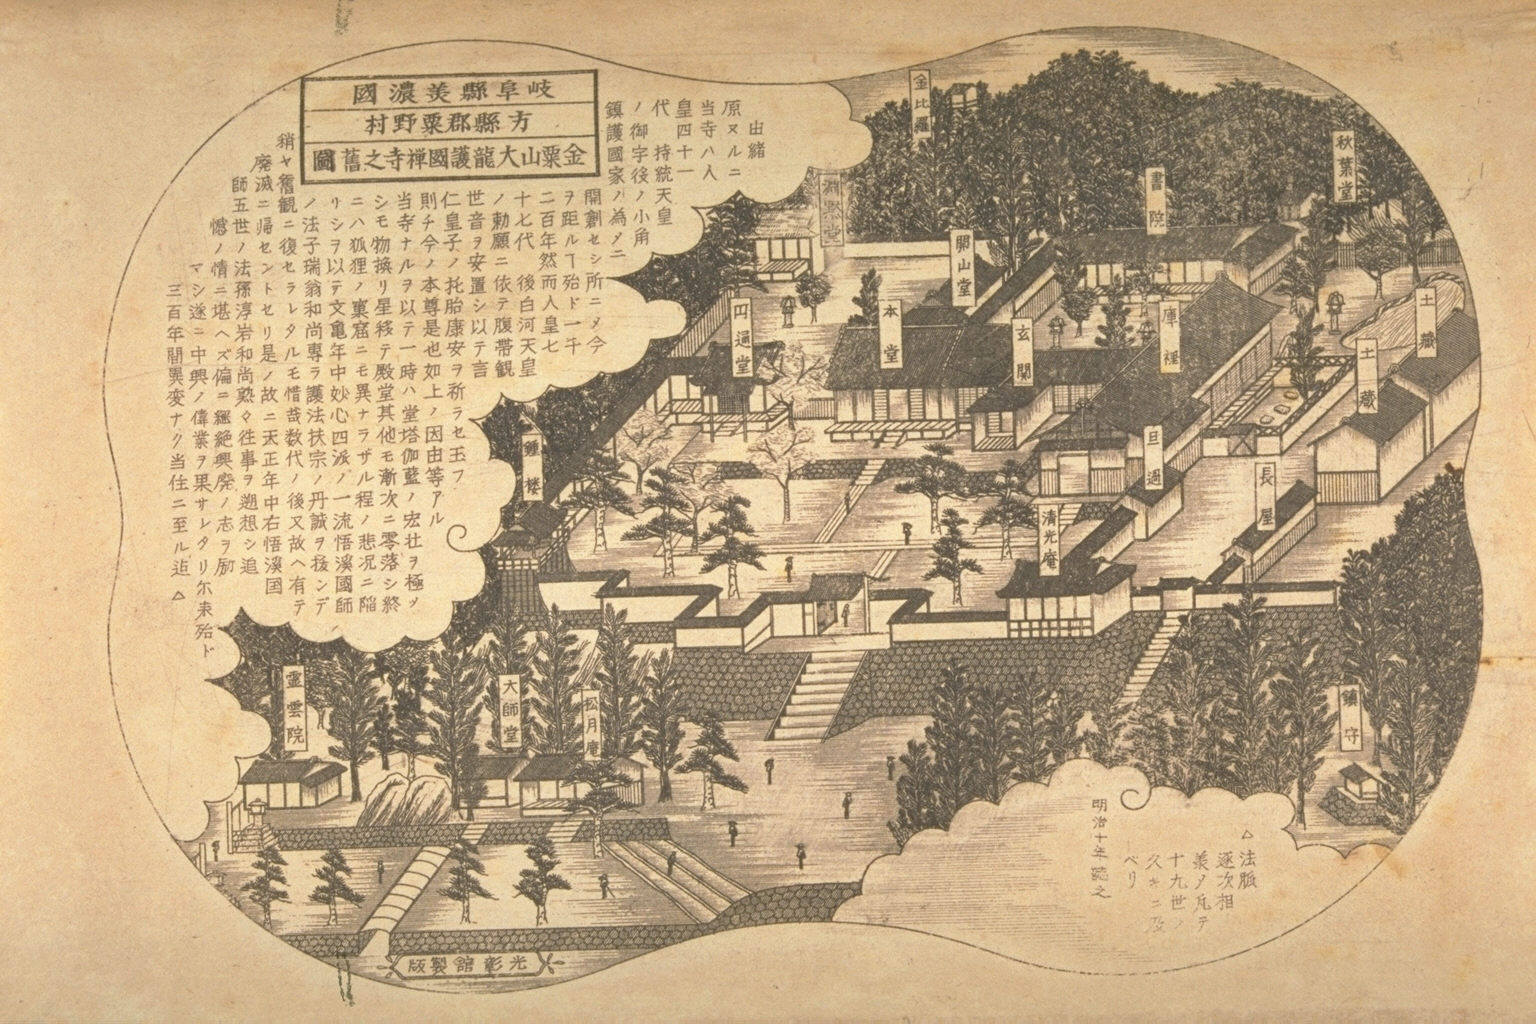 岐阜縣美濃國
方縣郡粟野村
金粟山大龍護國禅寺之舊圖
由緒
原ヌルニ
当寺ハ人
皇四十一
代 持統天皇
ノ御宇後ノ小角
鎮護國家ノ為メニ
開創セシ所ニメ今
ヲ距ルヿ殆ド一千
二百年然而人皇七
十七代 後白河天皇
ノ勅願ニ依テ腹帯観
世音ヲ安置シ以テ言
仁皇子ノ托胎康安ヲ祈ラセ玉フ
則チ今ノ本尊是也如上ノ因由等アル
当寺ナルヲ以テ一時ハ堂塔伽藍ノ宏壮ヲ極メ
シモ物換リ星移テ殿堂其他モ漸次ニ零落シ終
ニハ狐狸ノ裏窟ニモ異ナラザル程ノ悲况ニ陥
リシヲ以テ文亀年中妙心四派ノ一流悟溪國師ノ
ノ法子瑞翁和尚専ラ護法扶宗ノ丹誠ヲ抜ンデ
稍ヤ舊観ニ復セラレタルモ惜哉数代ノ後又故ヘ有テ
廃滅ニ帰セントセリ是ノ故ニ天正年中右悟溪国
師五世ノ法孫淳岩和尚熟々往事ヲ遡想シ追
憾ノ情ニ堪ヘズ偏ニ継絶興廃ノ志ヲ励
マシ遂ニ中興ノ偉業ヲ果サレタリ尓来殆ド
三百年間異変ナク当住ニ至ル迠 △
金比羅
秋葉堂
書院
開山堂
本堂
円通堂
玄関
庫裡
土蔵
土蔵
鍾楼
旦過
長屋
清光庵
鎮守
霊雲院
大師堂
松月庵
△法脈
逐次相
羕メ凡テ
十九世ノ
久キニ及
ベリ
明治十年
光彰館製版